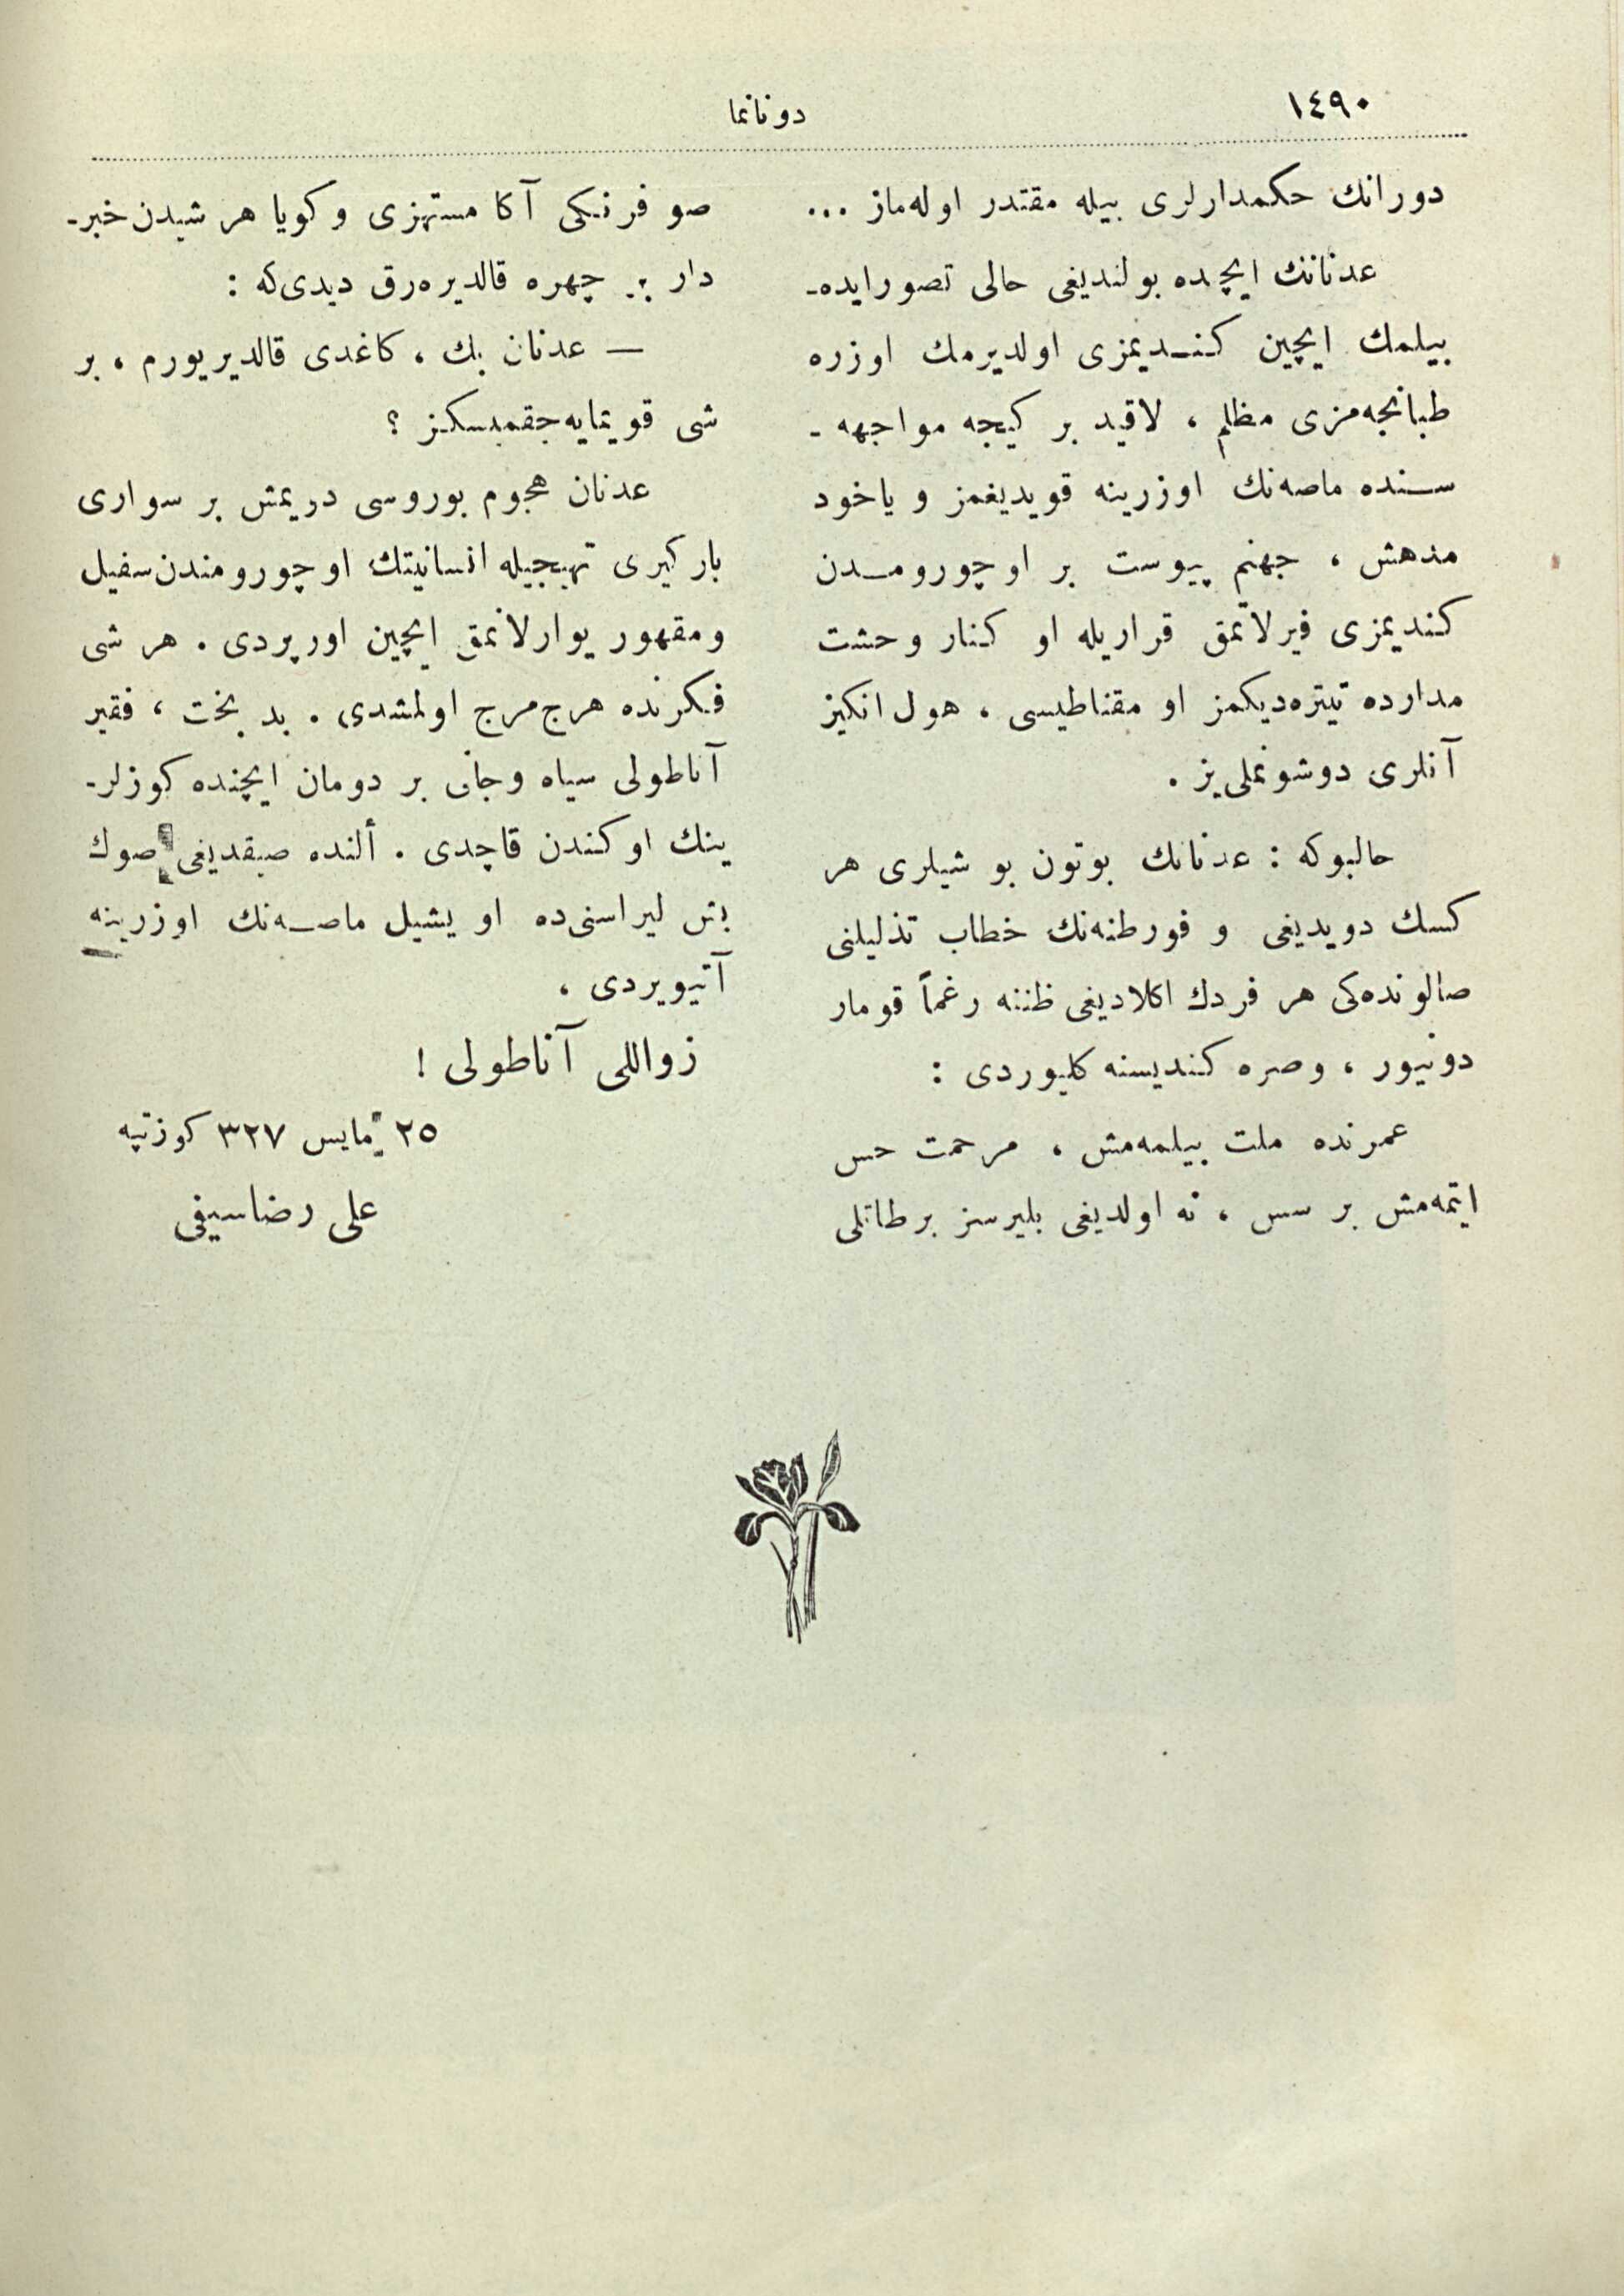 ١٤٩٠
دونانما
دورانك حكمدارلرى بيله مقتدر اوله‌ماز ...
عدنانك ايچنده بولنديغى حالى تصور ايده-
بيلمك ايچين كنديمزى اولديرمك اوزره
طبانجه‌مزى مظلم ، لاقيد بر كيجه مواجهه -
سنده ماصه‌نك اوزرينه قويديغمز و ياخود
مدهش ، جهنم پيوست بر اوچورومدن
كنديمزى فيرلاتمق قراريله او كنار وحشت
مدارده تيتره‌ديكمز او مقناطيسى ، هول انكيز
آنلرى دوشونملى‌يز .
حالبوكه : عدنانك بوتون بو شيلرى هر
كسك دويديغى و فورطنه‌نك خطاب تذليلنى
صالونده‌كى هر فردك اكلاديغى ظننه رغماً قومار
دونيور ، وصره كنديسنه كليوردى :
عمرنده ملت بيلمه‌مش ، مرحمت حس
ايتمه‌مش بر سس ، نه اولديغى بليرسز بر طاتلى
صو فرنكى آكا مستهزى و كويا هر شيدن خبر-
دار بر چهره قالديره‌رق ديدى‌كه :
— عدنان بك ، كاغدى قالديريورم ، بر
شى قويمايه‌جقميسكز ؟
عدنان هجوم بوروسى دريمش بر سوارى
باركيرى تهيجيله انسانيتك اوچورومندن سفيل
ومقهور يوارلانمق ايچين اورپردى . هر شى
فكرنده هرج‌مرج اولمشدى . بد بخت ، فقير
آناطولى سياه وجانى بر دومان ايچنده كوزلر-
ينك اوكندن قاچدى . ألنده صيقديغى صوك
بش ليراسنى‌ده او يشيل ماصه‌نك اوزرينه
آتيويردى ،
زواللى آناطولى !
٢٥ مايس ٣٢٧ كوزتپه
على رضا سيفى